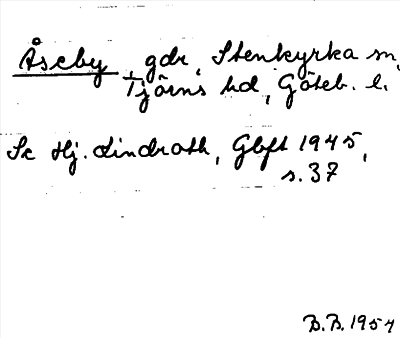 Åseby, gdr, Stenkyrka sn,
Tjörns hd, Göteb. l.
Se Hj. Lindroth, Gbft 1945,
s. 37
B.B. 1954